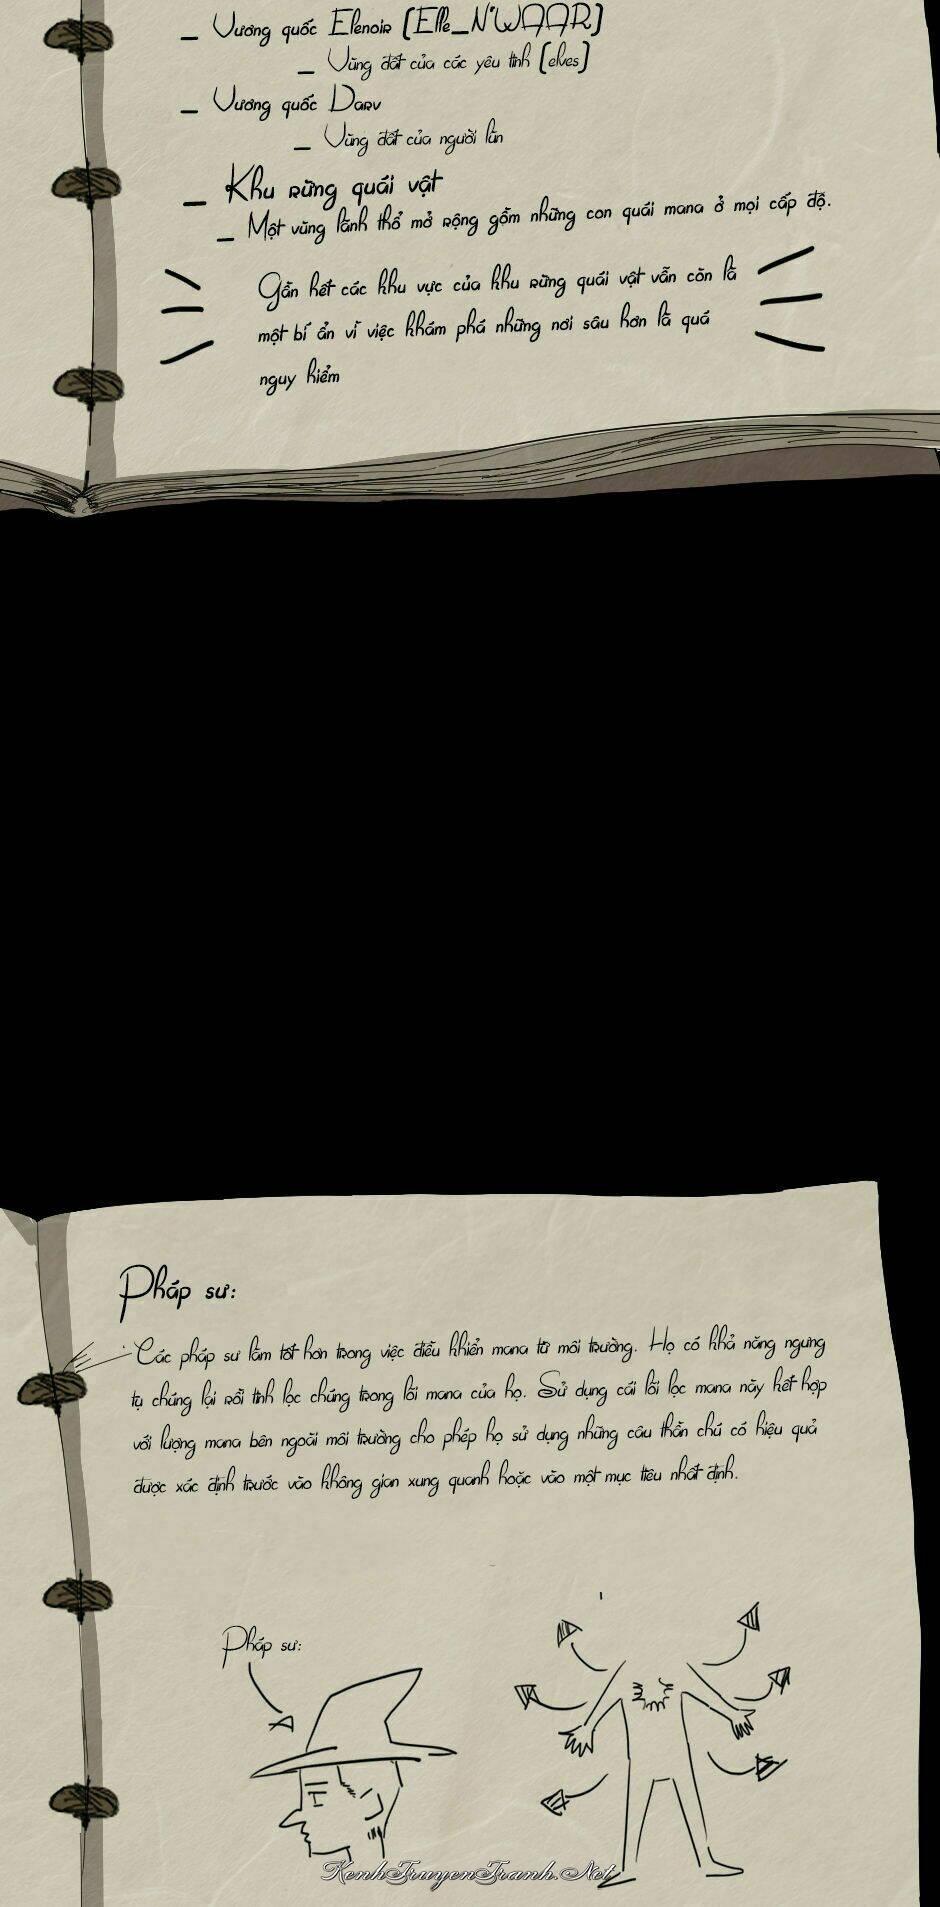 _ Vương quốc Elenoir (Elle_N'WAAR)
_ Vùng đất của các yêu tinh (elves)
_ Vương quốc Darv
_ Vùng đất của người lùn
_ Khu rừng quái vật
_ Một vùng lãnh thổ mở rộng gồm những con quái mana ở mọi cấp độ.
Gần hết các khu vực của khu rừng quái vật vẫn còn là
một bí ẩn vì việc khám phá những nơi sâu hơn là quá
nguy hiểm
Pháp sư:
Các pháp sư làm tốt hơn trong việc điều khiển mana từ môi trường. Họ có khả năng ngưng
tụ chúng lại rồi tinh lọc chúng trong lõi mana của họ. Sử dụng cái lõi lọc mana này kết hợp
với lượng mana bên ngoài môi trường cho phép họ sử dụng những câu thần chú có hiệu quả
được xác định trước vào không gian xung quanh hoặc vào một mục tiêu nhất định.
Pháp sư:
KenhTruyenTranh.Net